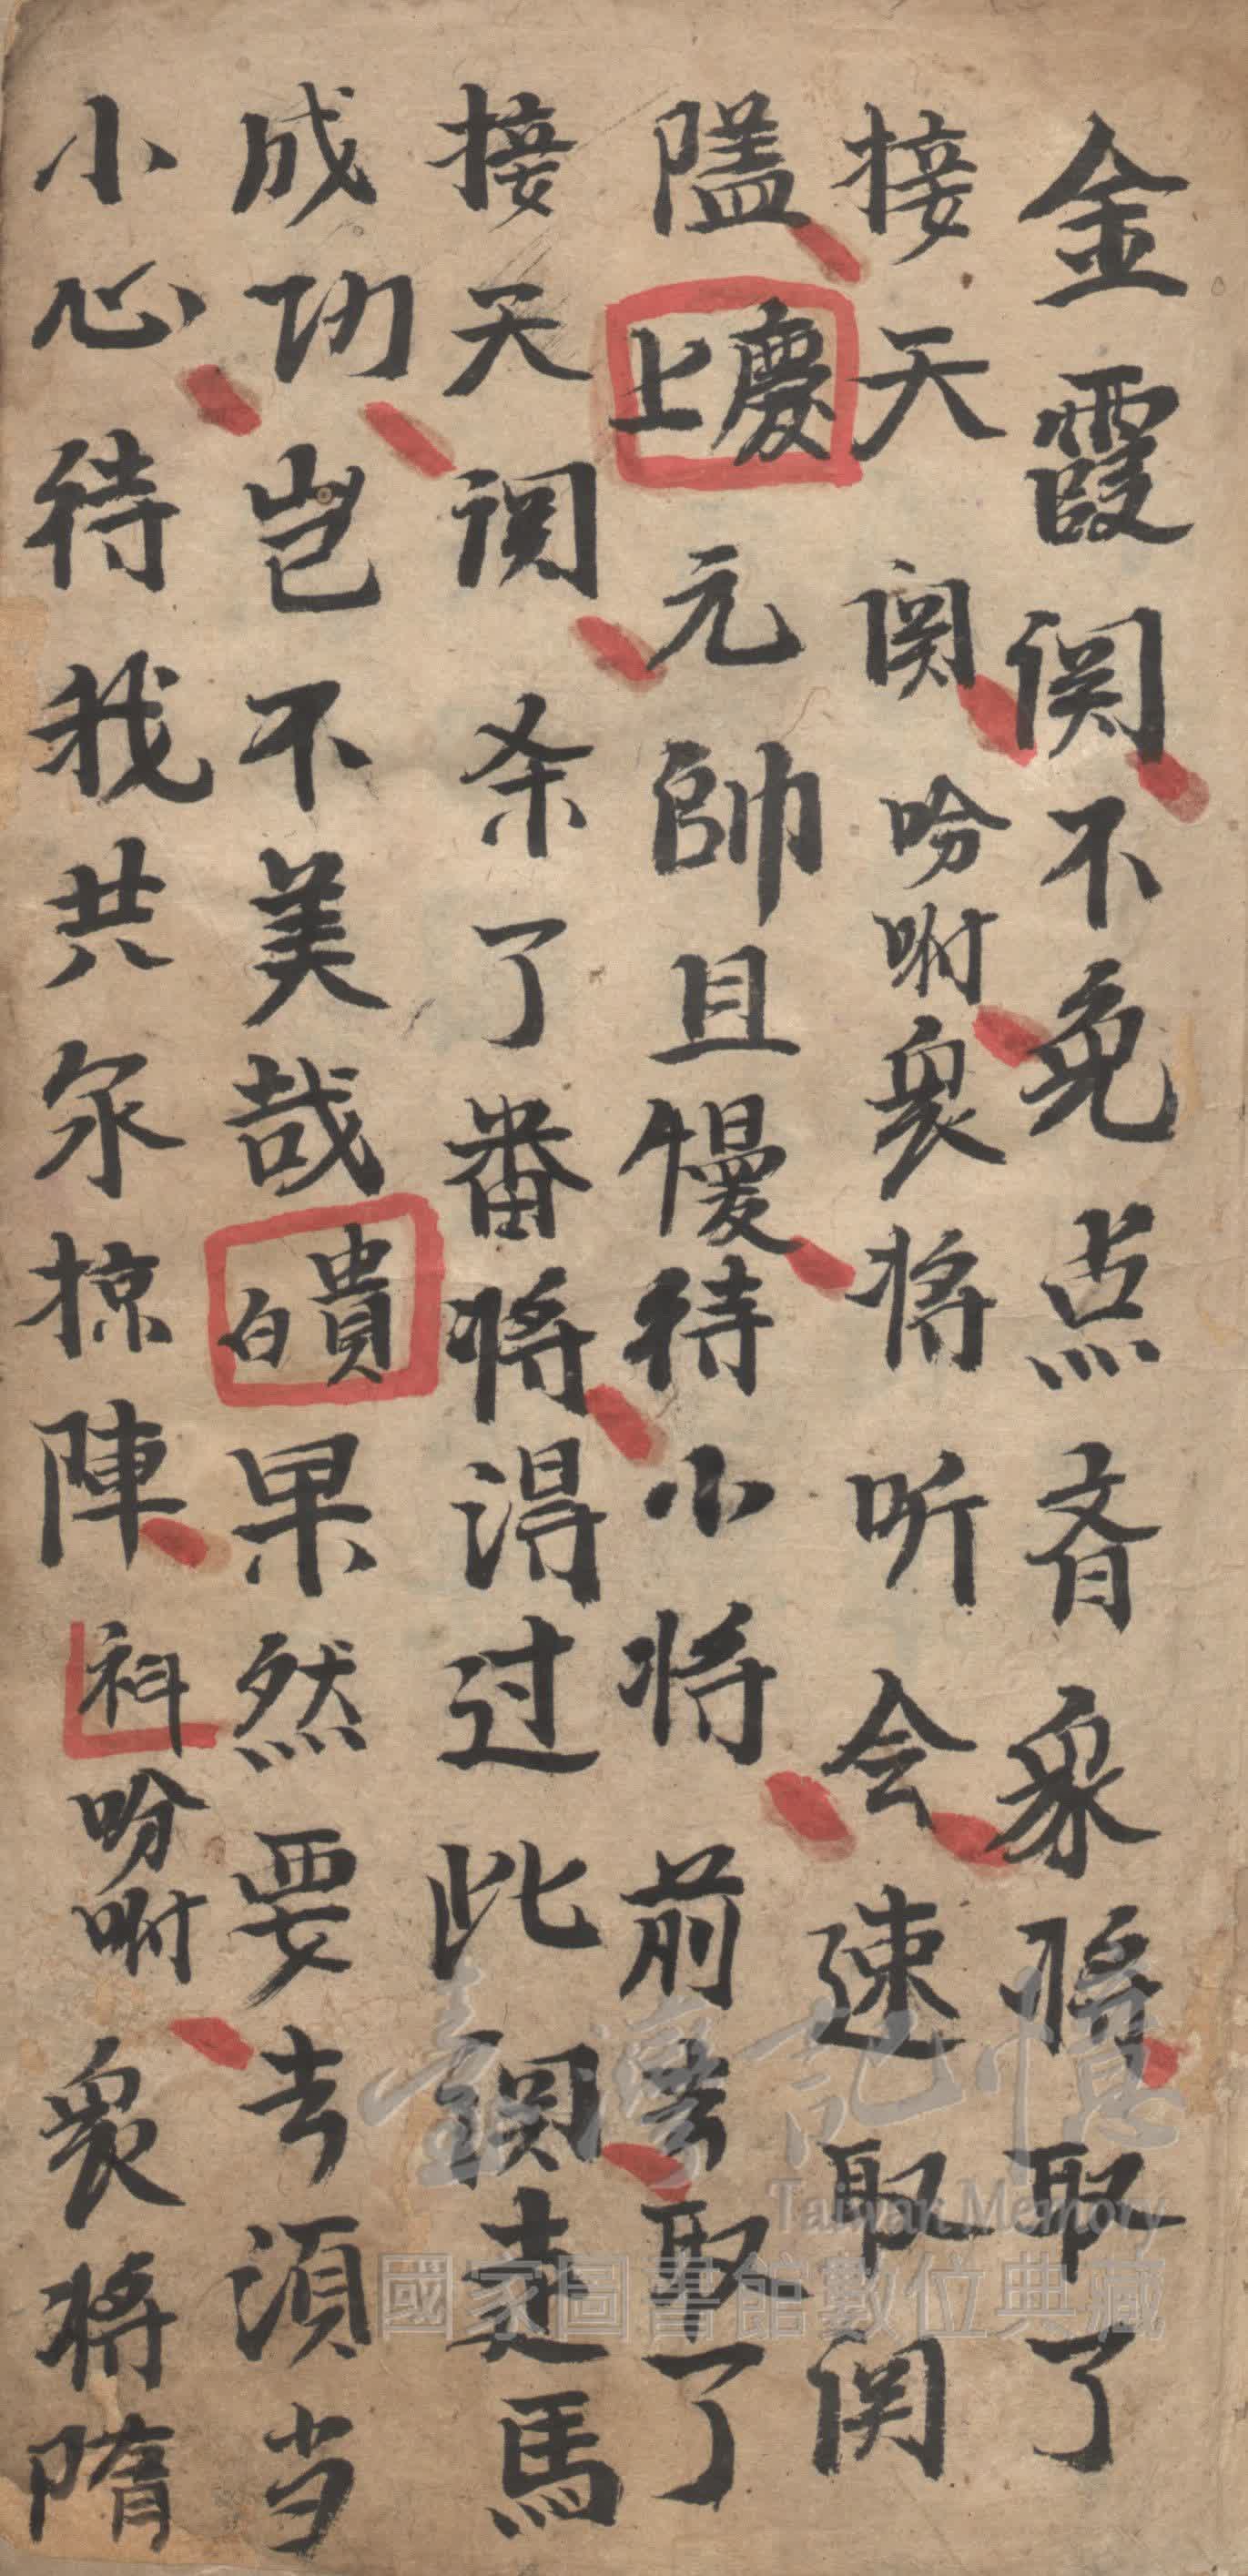 金霞関不免点斉衆将取了
接天関吩咐衆将听令速取関
隘慶上元帥且慢待小将前去取了
接天関杀了番将得过此関走馬
成功岂不美哉貴白果然要去須当
小心待我共尔掠陣科吩咐衆将隋
臺灣記憶
Taiwan Memory
國家圖書館數位典藏